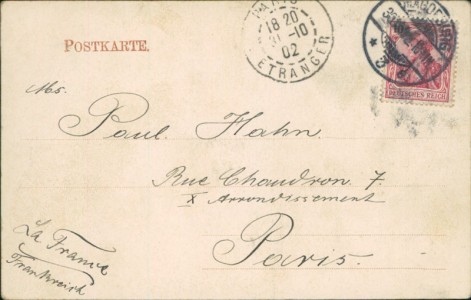 POSTKARTE.
PARIS
18 20
31 -10
02
ETRANGER
MAGDEBURG
DEUTSCHES REICH
Ms.
Paul Hahn.
Rue Chaudron 7.
X Arrondissement
Paris.
La France
Frankreich